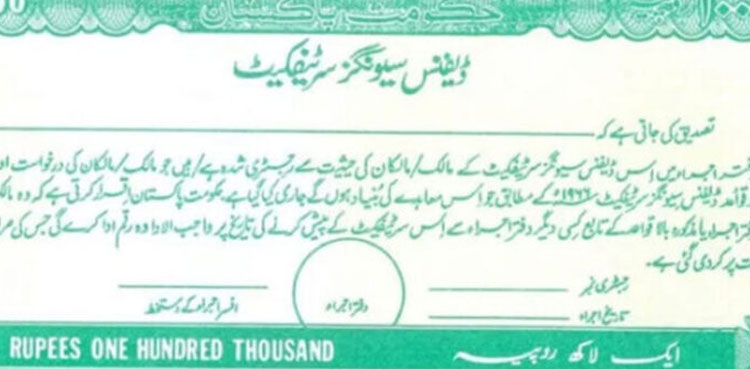 حکومت پاکستان
ڈیفنس سیونگز سرٹیفکیٹ
تصدیق کی جاتی ہے کہ
اجراء میں اس ڈیفنس سیونگز سرٹیفکیٹ کے مالک/مالکان کی حیثیت سے رجسٹری شدہ ہے/ہیں جو مالک/مالکان کی درخواست
قواعد ڈیفنس سیونگز سرٹیفکیٹ ۱۹۶۶ء کے مطابق جو اس معاہدے کی بنیاد ہوں گے جاری کیا گیا ہے حکومت پاکستان اقرار کرتی ہے کہ وہ
اجراء یا مذکورہ بالا قواعد کے تابع کسی دیگر دفتر اجراء سے اس سرٹیفکیٹ کے پیش کرنے کی تاریخ پر واجب الادا وہ رقم ادا کرے گی جس کی
پر کر دی گئی ہے۔
رجسٹری نمبر
تاریخ اجراء دفتر اجراء افسر اجراء کے دستخط
RUPEES ONE HUNDRED THOUSAND ایک لاکھ روپیہ